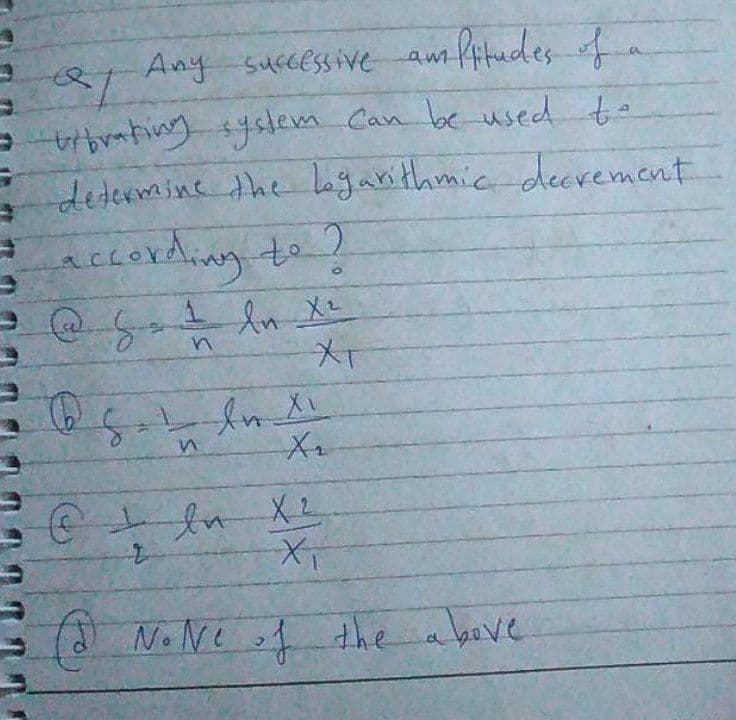 Q/ Any successive amplitudes of a
vibrating system can be used to
determine the logarithmic decrement
according to ?
ⓐ δ = 1/n ln X2/X1
ⓑ δ = 1/n ln X1/X2
ⓒ 1/2 ln X2/X1
ⓓ NoNe of the above